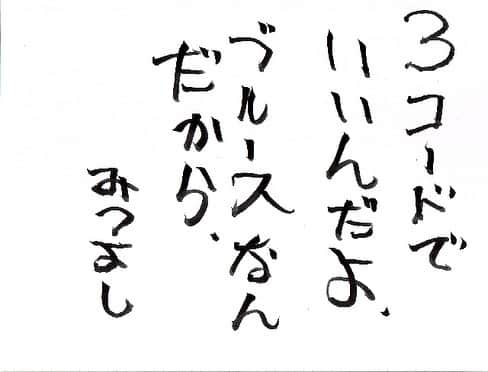 3コードで
いいんだよ、
ブルースなん
だから、
みつよし